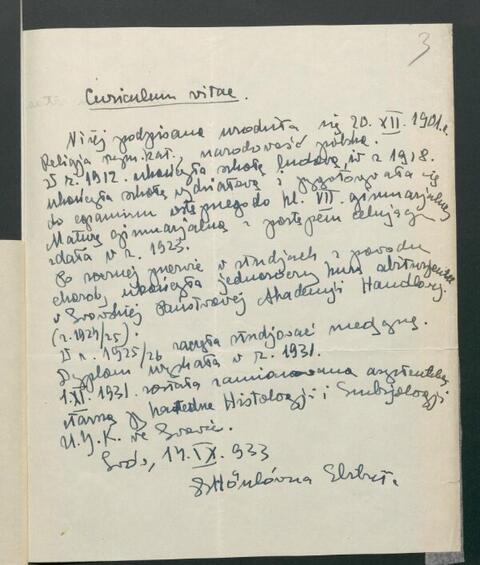 3
Curriculum vitae.
Niżej podpisana urodziła się 20. XII. 1901.r.
Religja rzym. kat., narodowość polska.
W r. 1912. ukończyła szkołę ludową, w r. 1918.
ukończyła szkołę wydziałową i przygotowywała się
do egzaminu wstępnego do kl. VII. gimnazjalnej
Maturę gimnazjalną z postępem celującym
zdała w r. 1923.
Po rocznej przerwie w studjach z powodu
choroby ukończyła jednoroczny kurs abiturjentów
w Lwowskiej Państwowej Akademji Handlowej.
(r. 1924/25).
W r. 1925/26 zaczęła studjować medycynę.
Dyplom uzyskała w r. 1931.
1.XI. 1931. została zamianowana asystentką
starszą przy katedrze Histologji i Embrjologji
U.J.K. we Lwowie.
Lwów, 14. IX. 933